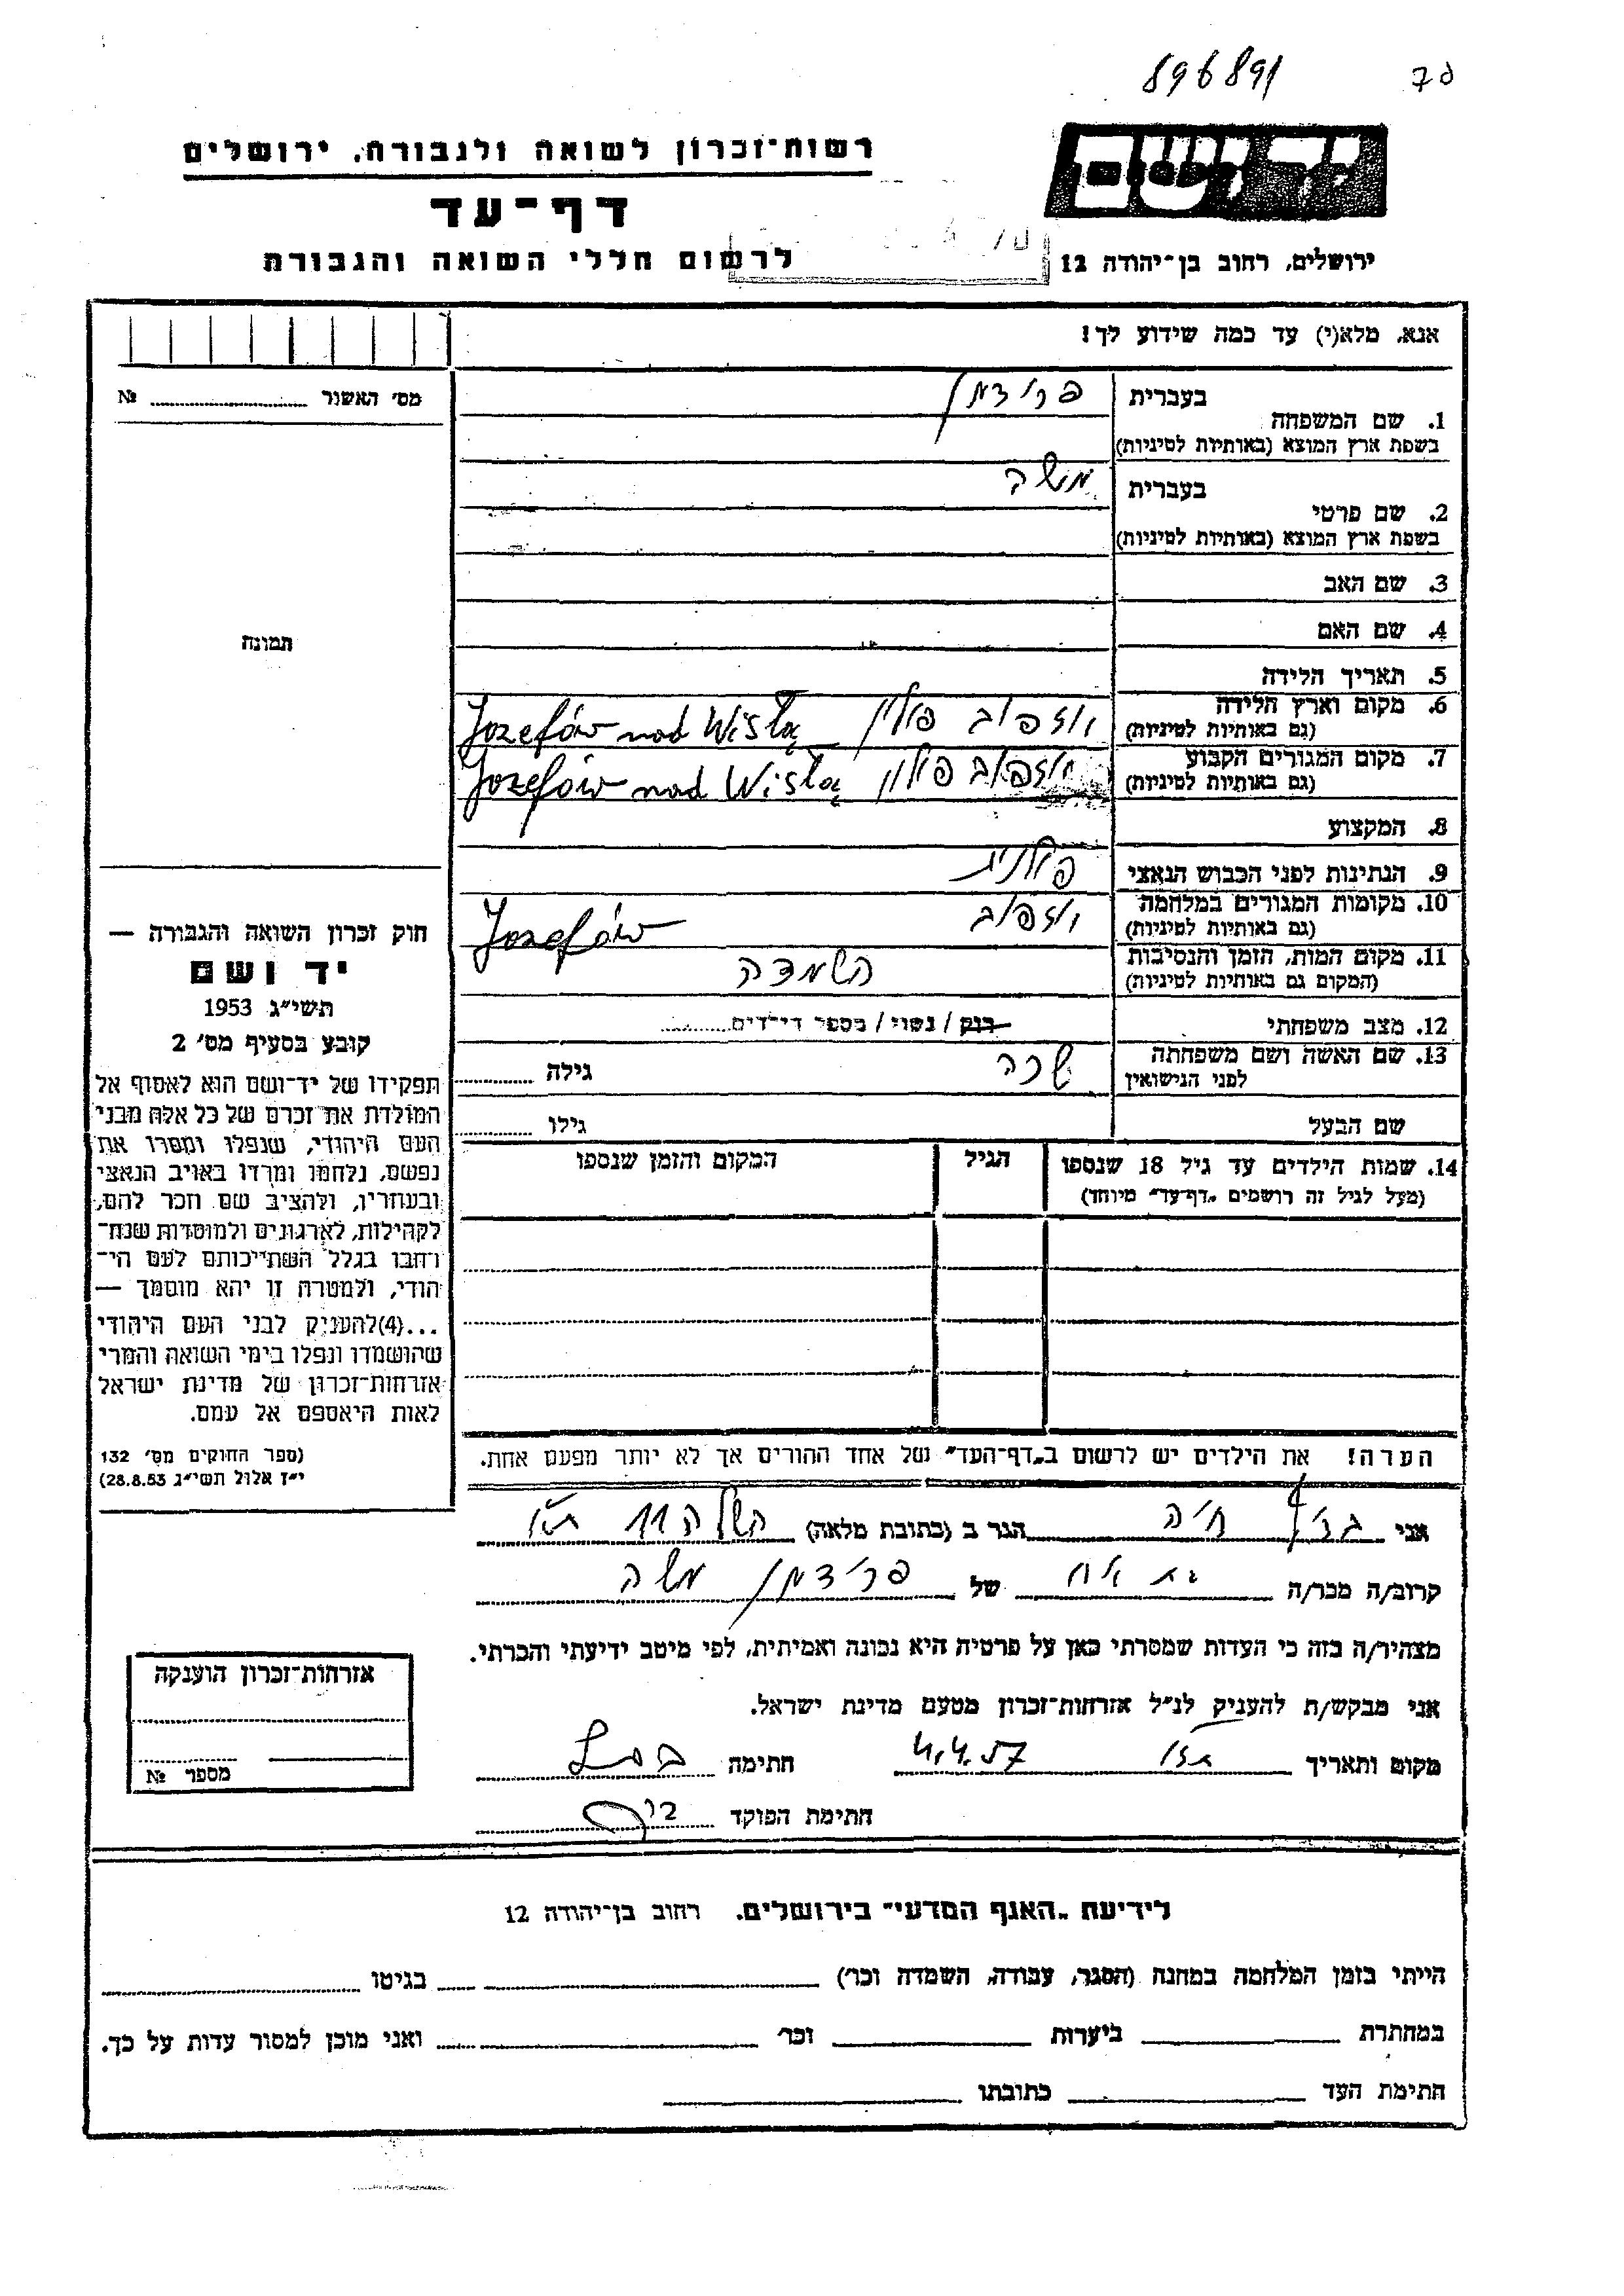 896891
רשות-זכרון לשואה ולגבורה, ירושלים
יד ושם
דף-עד
לרשום חללי השואה והגבורה
ירושלים, רחוב בן-יהודה 12
אנא, מלא(י) עד כמה שידוע לך!
מס' האשור № ............
1. שם המשפחה
בעברית פרידמן
בשפת ארץ המוצא (באותיות לטיניות)
2. שם פרטי
בעברית משה
בשפת ארץ המוצא (באותיות לטיניות)
3. שם האב
4. שם האם
תמונה
5. תאריך הלידה
6. מקום וארץ הלידה
(גם באותיות לטיניות)
יוזפוב פולין Jozefów nad Wisłą
7. מקום המגורים הקבוע
(גם באותיות לטיניות)
יוזפוב פולין Jozefów nad Wisłą
8. המקצוע
9. הנתינות לפני הכבוש הנאצי פולנית
10. מקומות המגורים במלחמה
(גם באותיות לטיניות)
יוזפוב Jozefów
11. מקום המות, הזמן והנסיבות
(המקום גם באותיות לטיניות)
השמדה
12. מצב משפחתי רוק / נשוי / מספר הילדים............
13. שם האשה ושם משפחתה
לפני הנישואין
שרה גילה ............
שם הבעל גילו ............
14. שמות הילדים עד גיל 18 שנספו
(מעל לגיל זה רושמים „דף-עד" מיוחד)
הגיל
המקום והזמן שנספו
הערה! את הילדים יש לרשום ב„דף-העד" של אחד ההורים אך לא יותר מפעם אחת.
חוק זכרון השואה והגבורה —
יד ושם
תשי"ג 1953
קובע בסעיף מס' 2
תפקידו של יד-ושם הוא לאסוף אל
המולדת את זכרם של כל אלה מבני
העם היהודי, שנפלו ומסרו את
נפשם, נלחמו ומרדו באויב הנאצי
ובעוזריו, ולהציב שם וזכר להם,
לקהילות, לארגונים ולמוסדות שנח-
רבו בגלל השתייכותם לעם הי-
הודי, ולמטרה זו יהא מוסמך —
...(4)להעניק לבני העם היהודי
שהושמדו ונפלו בימי השואה והמרי
אזרחות-זכרון של מדינת ישראל
לאות היאספם אל עמם.
(ספר החוקים מס' 132
י"ז אלול תשי"ג 28.8.53)
אני חיה הגר ב (כתובת מלאה) השלה 11 ת"א
קרוב/ה מכר/ה בת אח של פרידמן משה
מצהיר/ה בזה כי העדות שמסרתי כאן על פרטיה היא נכונה ואמיתית, לפי מיטב ידיעתי והכרתי.
אני מבקש/ת להעניק לנ"ל אזרחות-זכרון מטעם מדינת ישראל.
מקום ותאריך 4.4.57 חתימה
חתימת הפוקד
אזרחות-זכרון הוענקה
מספר №
לידיעת „האגף המדעי" בירושלים, רחוב בן-יהודה 12
הייתי בזמן המלחמה במחנה (הסגר, עבודה, השמדה וכו') ............ בגיטו ............
במחתרת ............ ביערות ............ וכו' ............ ואני מוכן למסור עדות על כך.
חתימת העד ............ כתובתו ............